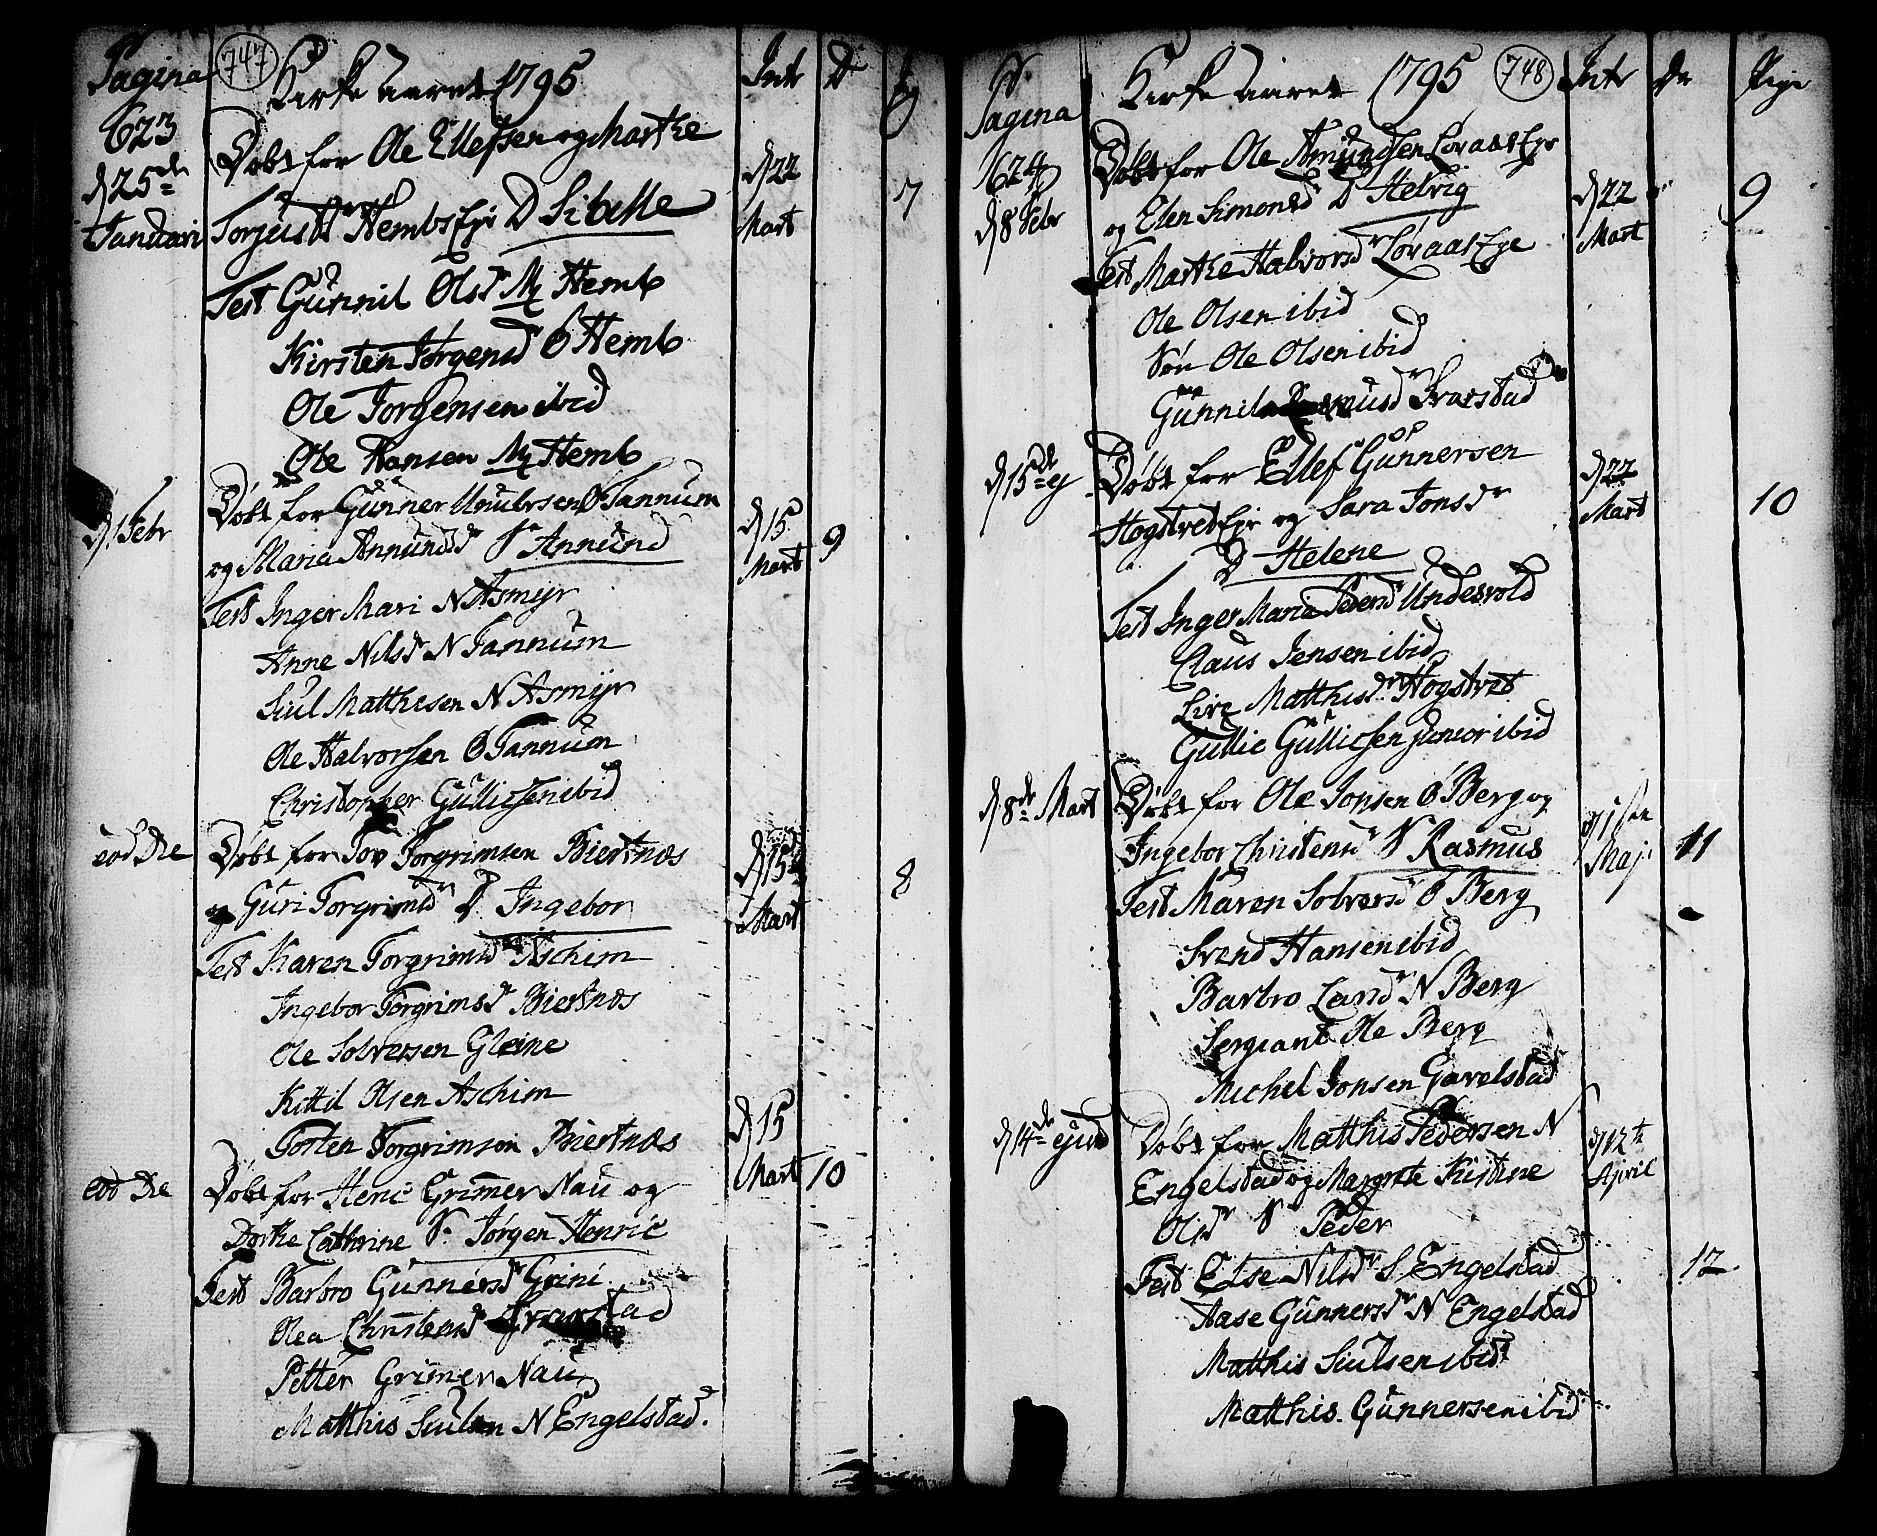 Pagina 747 Kirke aaret 1795 Intr D
623
d 25de Januari
Døbt for Ole Ellefsen og Marthe
Torjusdr Hembs Eje D Sibelle
d 22 Mart 7
Test Gunnil Olsdr M Hemb
Kirsten Jørgensdr Ø Hemb
Ole Jørgensen ibid
Ole Hansen M Hemb
d 1 Febr
Døbt for Gunner Ø Tannum
og Maria Annundsdr S Annund
d 15 Mart 9
Test Inger Mari N Asmyr
Anne Nilsdr N Tannum
Siul Matthesen N Asmyr
Ole Halvorsen Ø Tannum
Christopher Gullicsen ibid
eod Die
Døbt for Tov Torgrimsen Biertnæs
og Guri Torgrimsdr D Ingebor
d 15 Mart 8
Test Karen Torgrimsdr Aschim
Ingebor Torgrimsdr Biertnæs
Ole Solversen Gleine
Kittil Olsen Aschim
Torsten Torgrimsen Biertnæs
eod Die
Døbt for Henric Grimmer Nau og
Dorthe Cathrine S. Jørgen Henric
d 15 Mart 10
Test Barbro Gunnersdr Grini
Olea Christensdr Svarstad
Petter Grimmer Nau
Matthis Siulsen N Engelstad.
Pagina Kirke aaret 1795 748 Intr Dr Pige
624
d 8 Febr
Døbt for Ole Amundsen Løraas Eje
og Elen Simonsdr D Helvig
d 22 Mart 9
Test Marthe Halvorsdr Løraas Eje
Ole Olsen ibid
Søn Ole Olsen ibid
Gunnil Rasmusdr Svarstad
d 15de ej
Døbt for Ellef Gunnersen
Hogstvet Eje og Sara Jonsdr
D Helene
d 22 Mart 10
Test Inger Maria Pedersdr Undesvold
Claus Jensen ibid
Live Matthisdr Hogstvet
Gullic Gullicsen junior ibid
d 8de Mart
Døbt for Ole Jonsen Ø Berg og
Ingebor Christensdr S Rasmus
d 1ste Maji 11
Test Maren Solversdr Ø Berg
Svend Hansen ibid
Barbro Larsdr N Berg
Sergiant Ole Berg
Michel Jonsen Gavelstad
d 14de ejusd
Døbt for Matthis Pedersen N
Engelstad og Margrete Kirstine
Olsdr S Peder
d 12te April 12.
Test Else Nilsdr S Engelstad
Aase Gunnersdr N Engelstad
Matthis Siulsen ibid
Matthis Gunnersen ibid